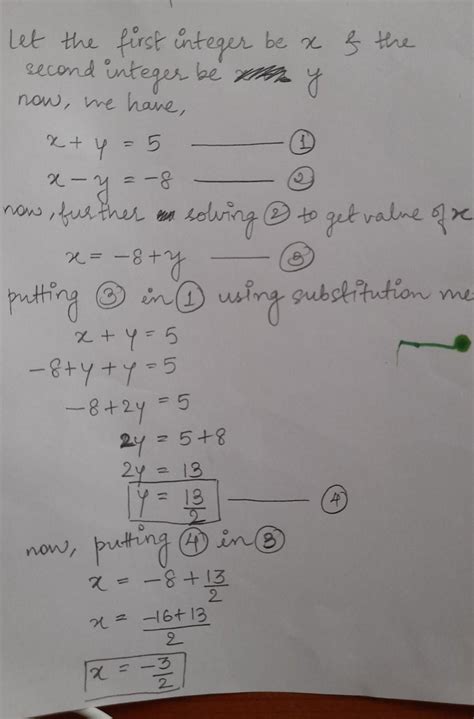 Let the first integer be x & the
second integer be y
now, we have,
x + y = 5 ——— ①
x - y = -8 ——— ②
now, further solving ② to get value of x
x = -8 + y ——— ③
putting ③ in ① using substitution me
x + y = 5
-8 + y + y = 5
-8 + 2y = 5
2y = 5 + 8
2y = 13
y = 13/2 ——— ④
now, putting ④ in ③
x = -8 + 13/2
x = -16+13/2
x = -3/2